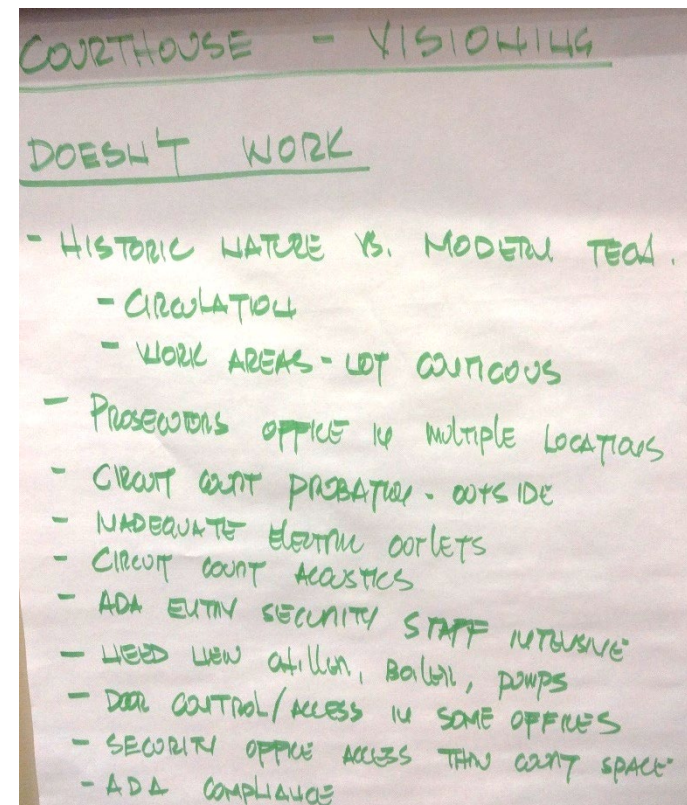 COURTHOUSE - VISIONING
DOESN'T WORK
- HISTORIC NATURE VS. MODERN TECH.
- CIRCULATION
- WORK AREAS - NOT CONTIGOUS
- PROSECUTORS OFFICE IN MULTIPLE LOCATIONS
- CIRCUIT COURT PROBATION - OUTSIDE
- INADEQUATE ELECTRIC OUTLETS
- CIRCUIT COURT ACOUSTICS
- ADA ENTRY SECURITY STAFF INTENSIVE
- NEED NEW CHILLER, BOILER, PUMPS
- DOOR CONTROL/ACCESS IN SOME OFFICES
- SECURITY OFFICE ACCESS THRU COURT SPACE
- ADA COMPLIANCE